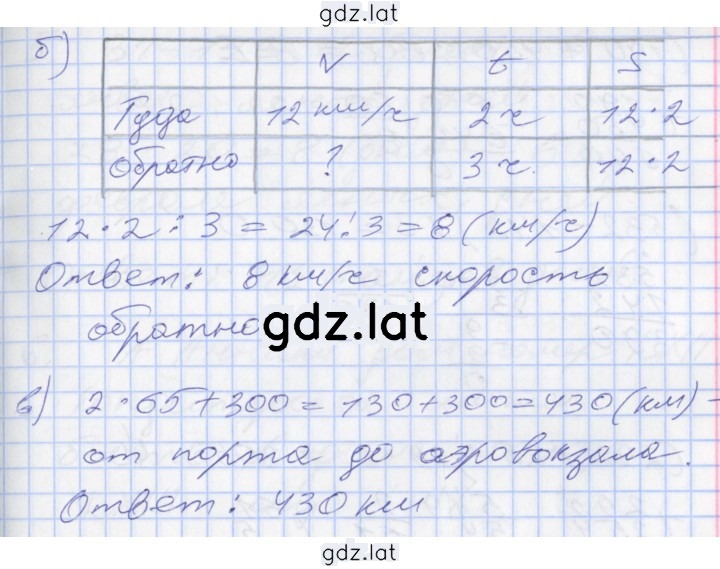 gdz.lat
б)
V t S
Туда 12 км/ч 2 ч 12·2
Обратно ? 3 ч. 12·2
12·2:3 = 24:3 = 8 (км/ч)
Ответ: 8 км/ч скорость
обратно
gdz.lat
в) 2·65+300=130+300=430 (км) -
от порта до аэровокзала.
Ответ: 430 км
gdz.lat